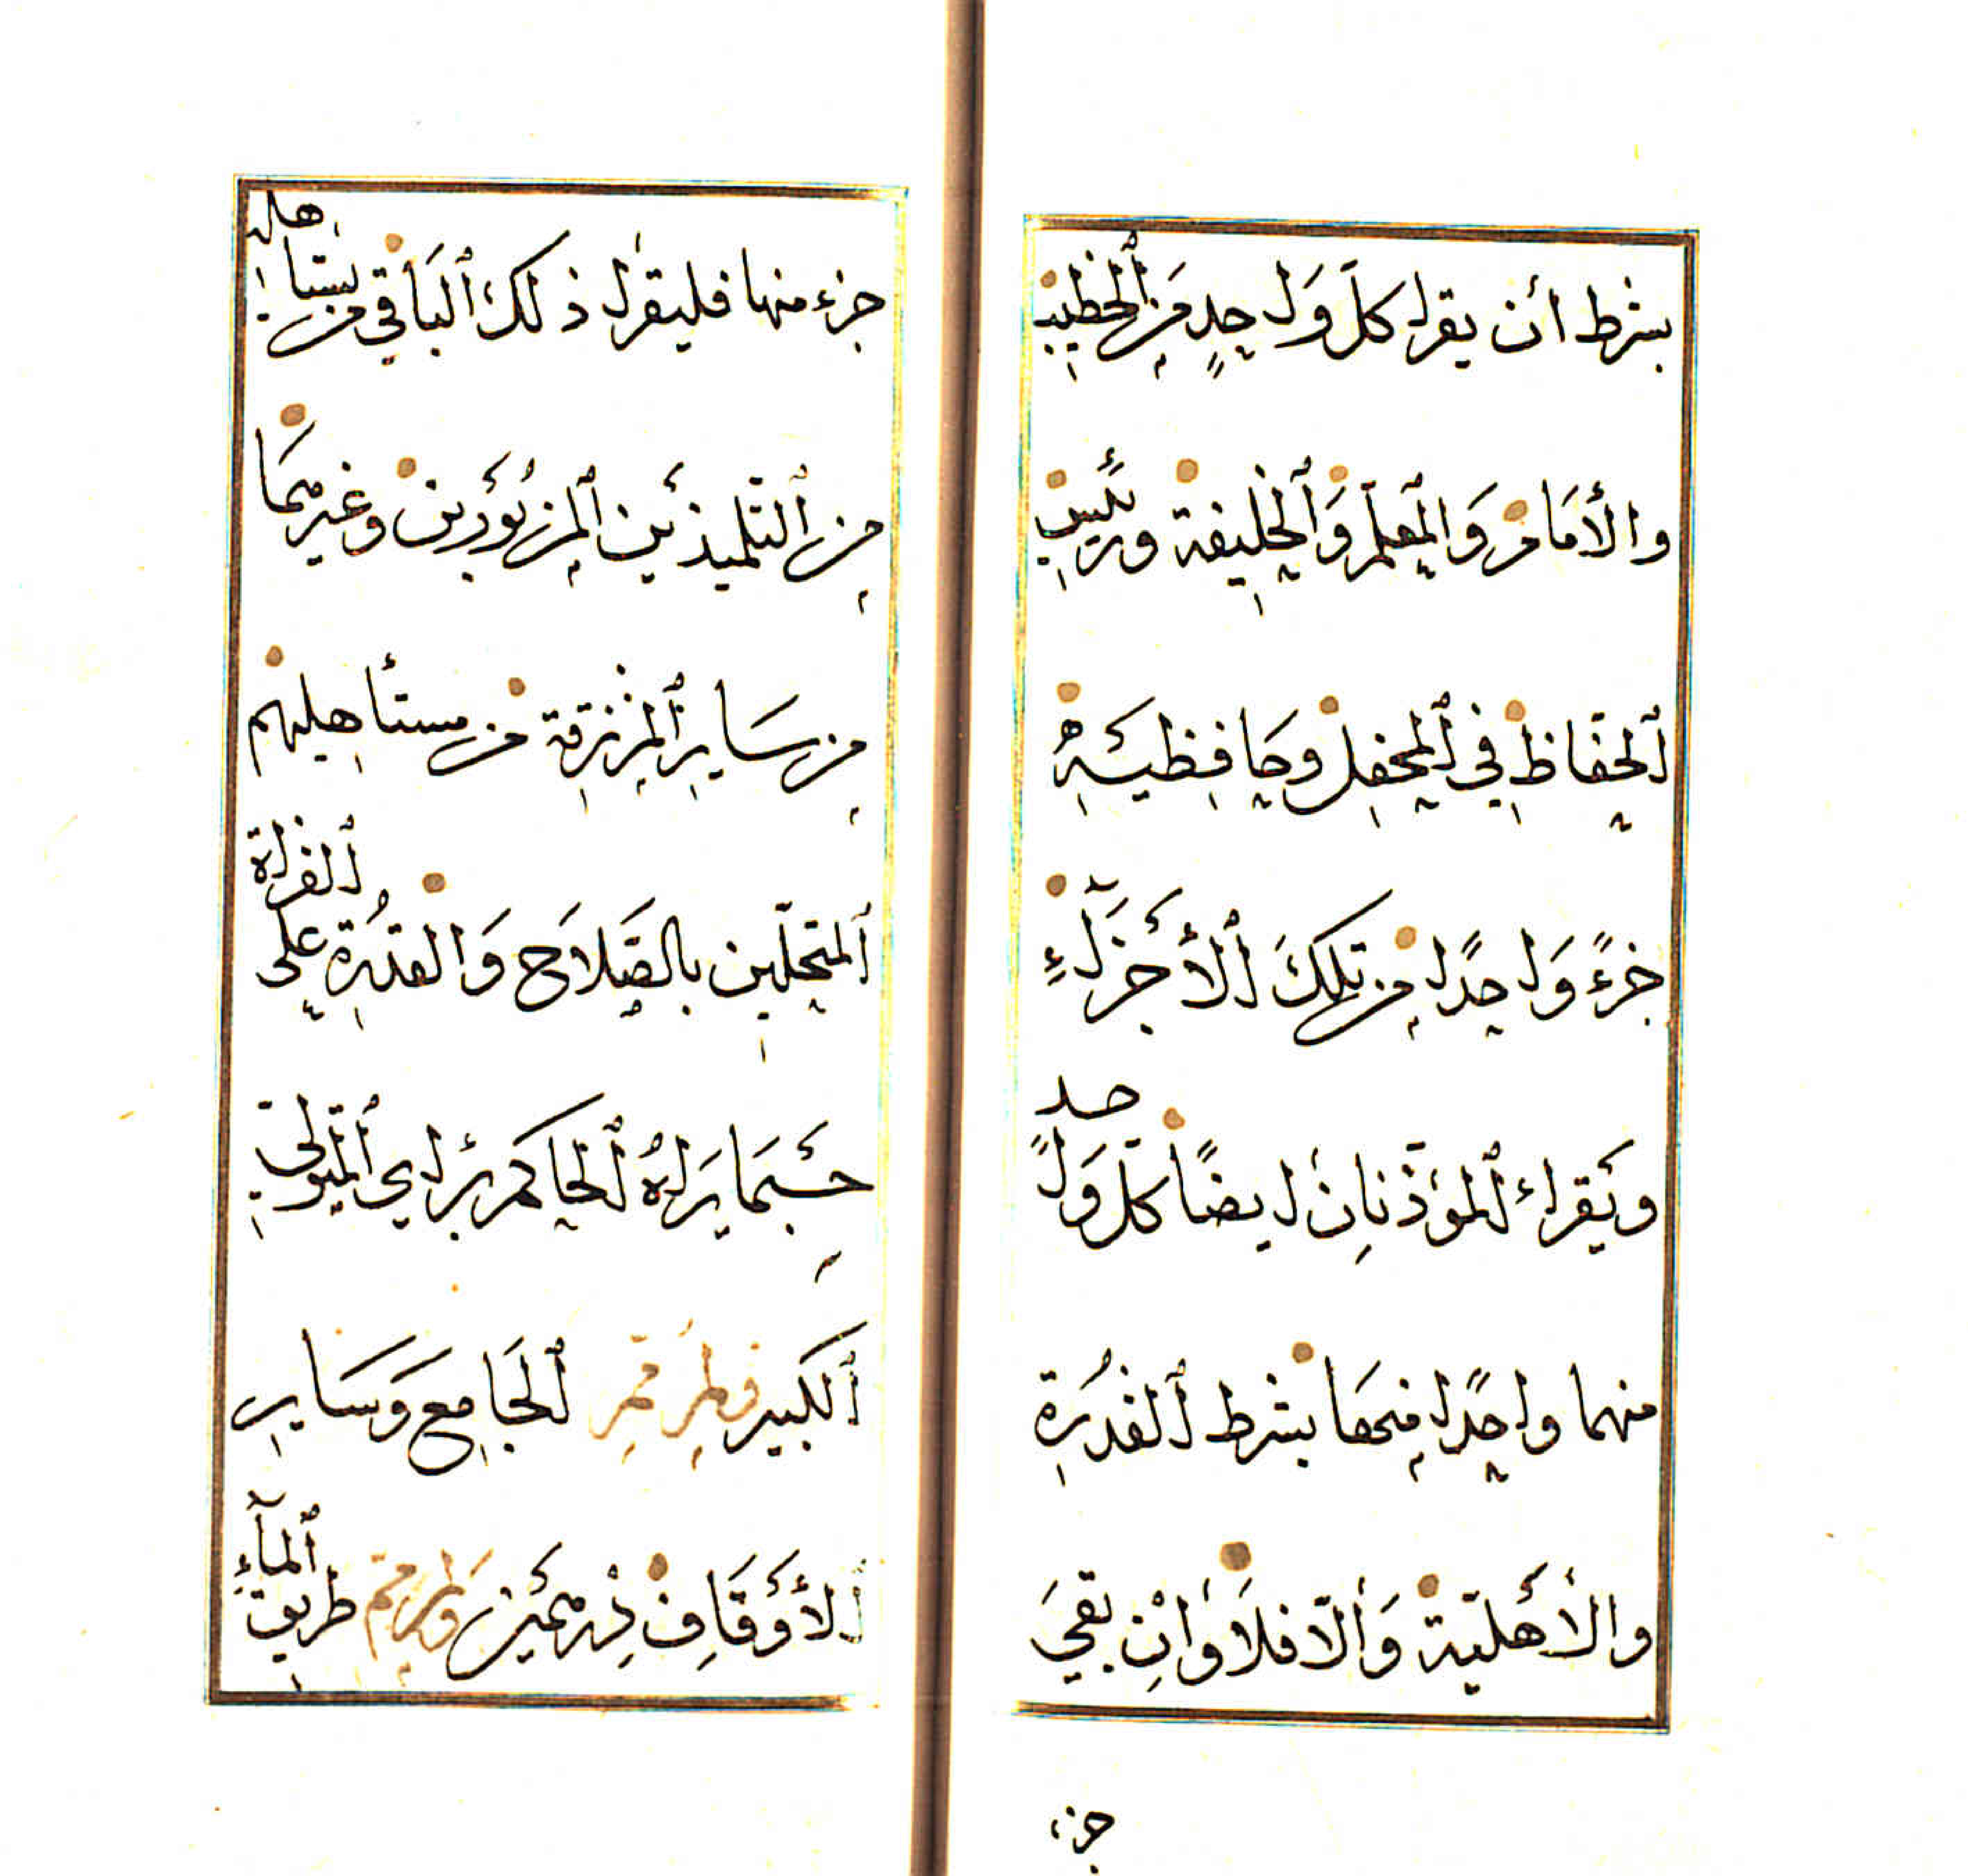 بشرط أن يقرا كلّ وَاحدٍ مِنَ ٱلخطيب
والأمَام وَالمعلّم وَٱلخليفة ورَئيس
ٱلحفّاظ في ٱلمحفل وحافظيَه
جزءً وَاحدًا من تلك ٱلأَجزَآءِ
ويَقراء ٱلمؤذّنانِ ايضًا كلّ وَاحد
منهما واحدًا منها بشرط ٱلقدُرَة
والأهَليّة وَالّا فلاَ وَانِ بقيَ
جزء
جزء منها فليقرا ذلك ٱلبَاقي من يستاهله
من ٱلتّلميذَين ٱلمزبُورَين وغيرهمَا
من سَاير ٱلمرتزقة من مستأهليهم
ٱلمتحلّين بالصّلاَح وَالقدُرة على ٱلقراة
حسَبمَا يَراهُ ٱلحاكم برَاي ٱلمتولّي
ٱلكبير ٱلجَامع وَسَاير
ٱلأَوقَافِ طريق ٱلمآءِ